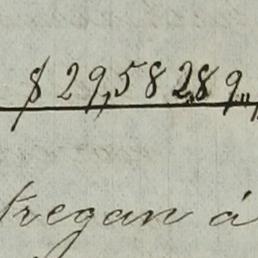 $ 29,582.89,,
tregan á